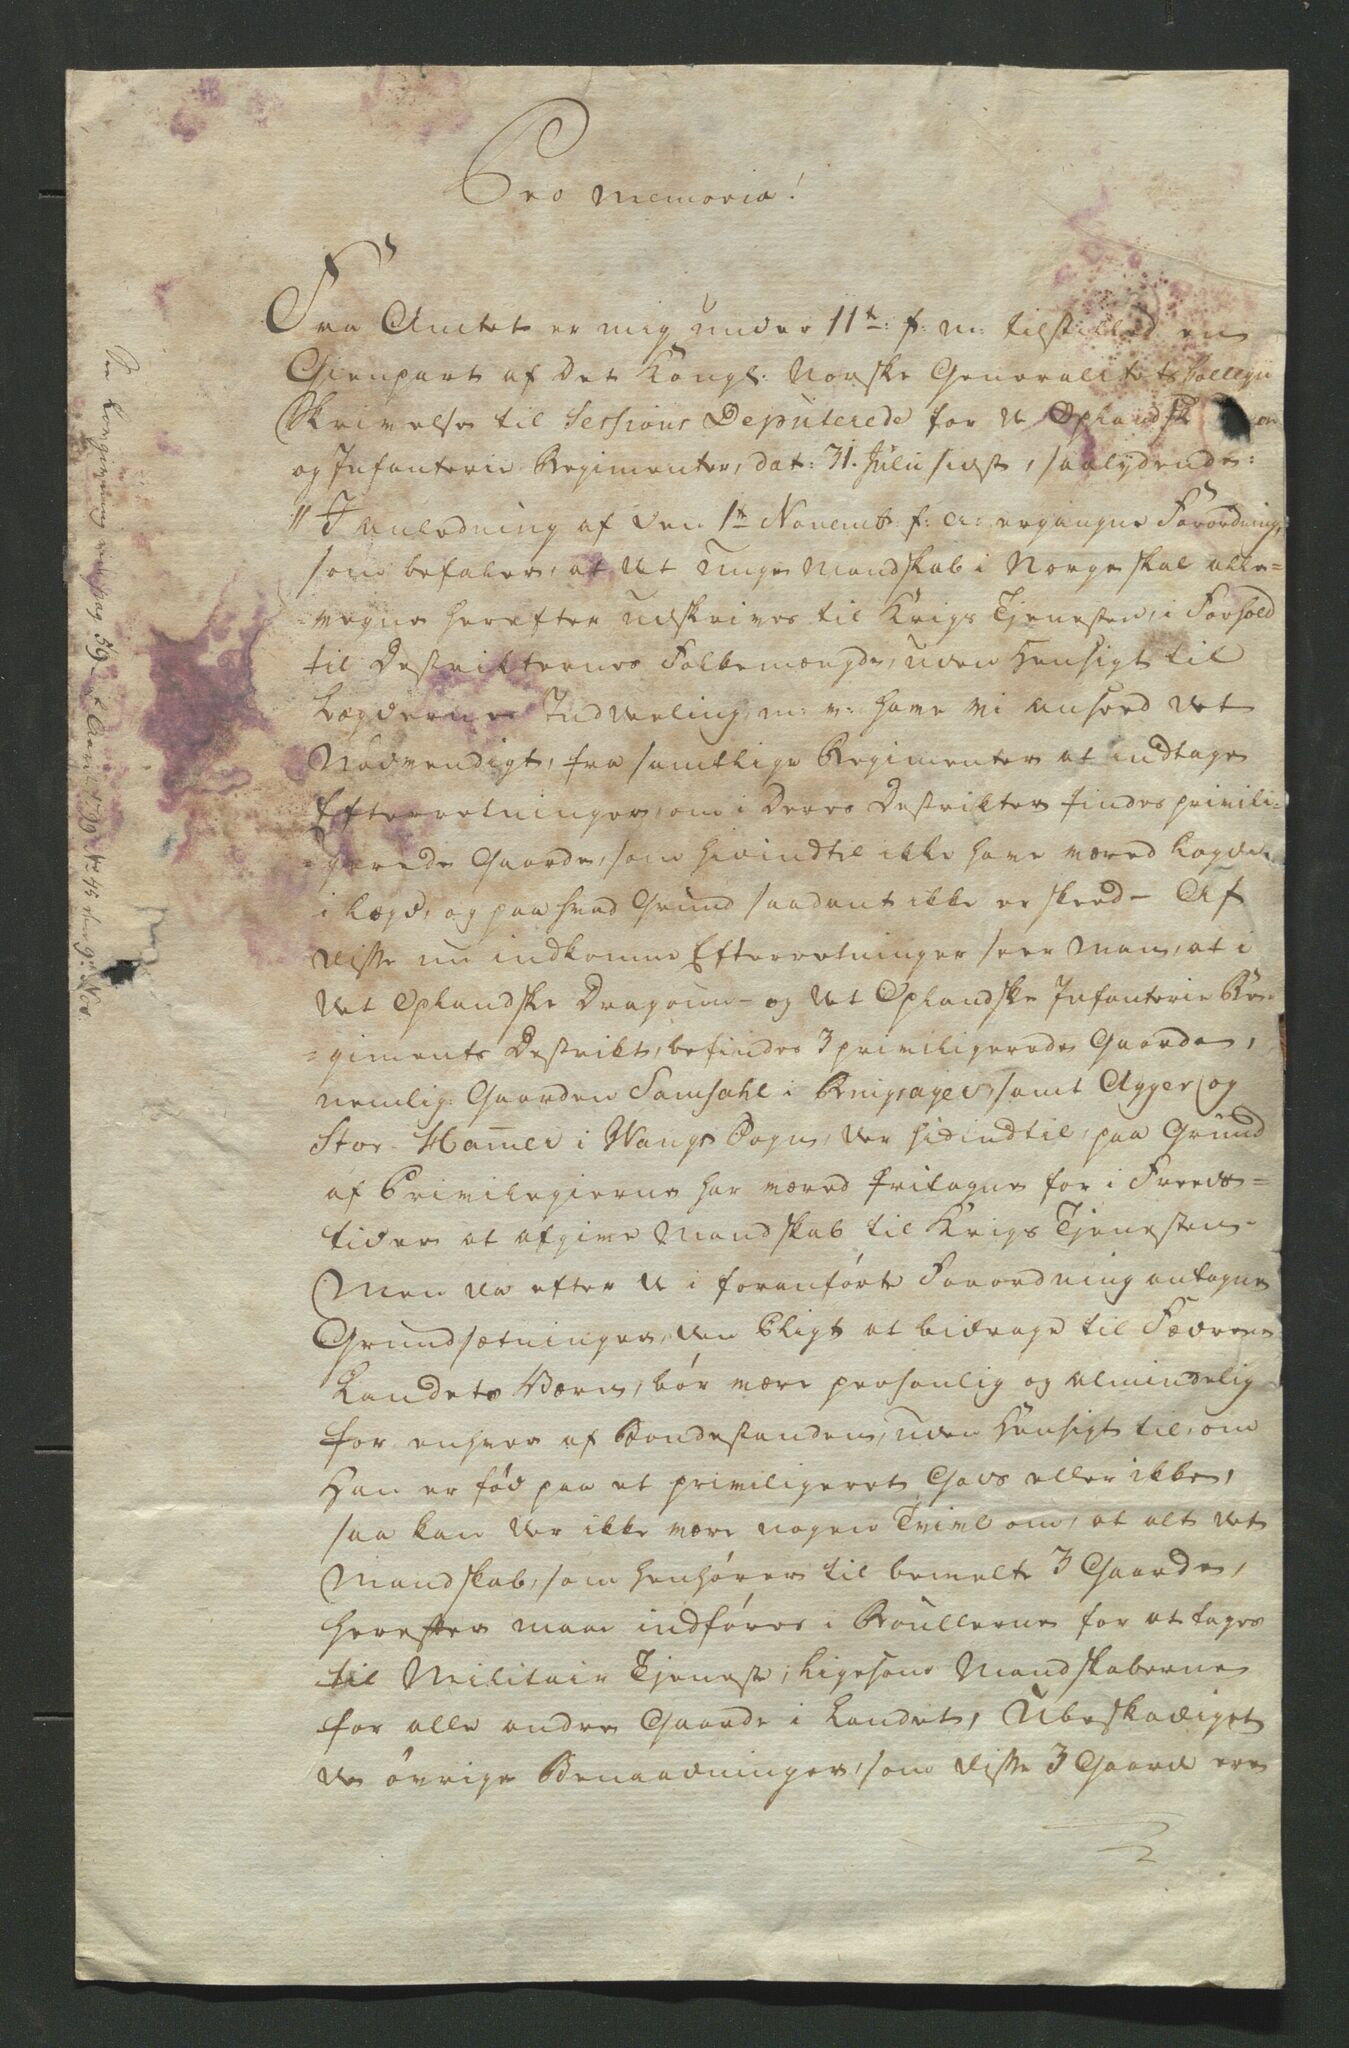 Pro Memoria!
Fra Amtet er mig under 11te f: m: tilstilled en
Gienpart af Det Kongl: Norske Generalitets Collegii
Skrivelse til Sessions Deputerede for de Oplandske
og Infanterie Regimenter, dat: 31. Julii sidst, saalydende:
"I anledning af den 1te Novembr f: a: ergangne Forordning,
som befaler, at det unge Mandskab i Norge skal alle=
=vegne herefter udskrives til Krigs Tjenesten, i Forhold
til Destrikternes Folkemængde, uden Hensigt til
Lægdernes Inddeeling, m: v: have vi anseed det
Nødvendigt, fra samtlige Regimenter at indtage
Efterretninger, om i Deres Destrikter findes privili=
=gerede Gaarde, som hidindtil ikke have været lagde
i Lægd, og paa hvad Grund saadant ikke er skeed - Af
disse nu indkomne Efterretninger seer Man, at i
det Oplandske Dragoun- og det Oplandske Infanterie Re=
=giments Destrikt, befindes 3 priviligerede Gaarde,
nemlig: Gaarden Samsahl i Ringsager, samt Agger og
Stor Hammer i Wangs Sogn, der hidindtil, paa Grund
af Privilegierne har været fritagne for i Freds=
tider at afgive Mandskab til Krigs Tjenesten -
Men da efter de i foranførte Forordning antagne
Grundsætninger, den Pligt at bidrage til Fædrene
Landets Værn, bør være personlig og almindelig
for enhver af Bondestanden, uden Hensigt til, om
Han er fød paa et priviligeret Gods eller ikke,
saa kan der ikke være nogen Tvivl om, at alt det
Mandskab, som henhører til bemelte 3 Gaarde,
herefter maae indføres i Roullerne for at tages
til Militair Tjeneste, ligesom Mandskaberne
for alle andre Gaarde i Landet, Ubeskadiget
de øvrige Benaadninger, som disse 3 Gaarde ere